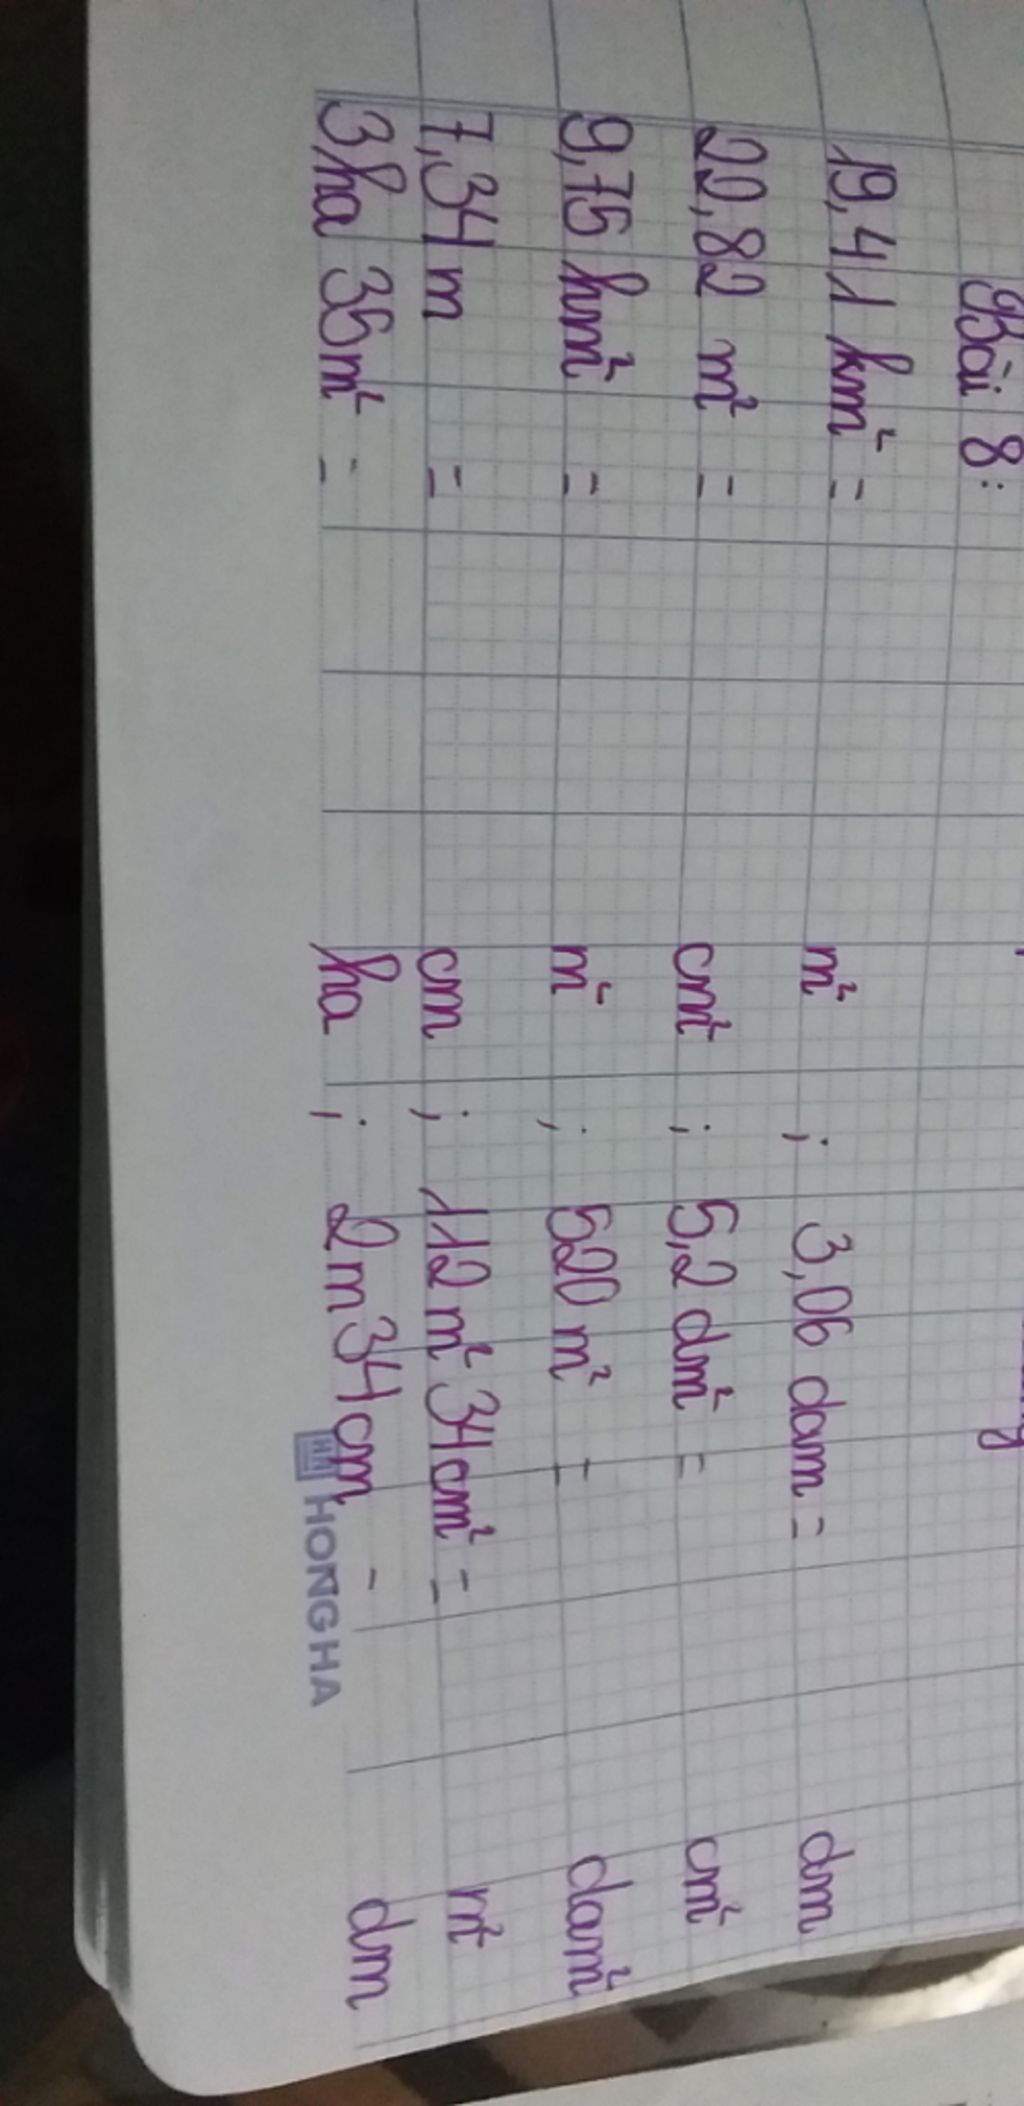 Bài 8:
19,41 km² = m² ; 3,06 dam = dm
22,82 m² = cm² ; 5,2 dm² = cm²
9,75 hm² = m² ; 520 m² = dam²
7,34 m = cm ; 112 m² 34 cm² = m²
3 ha 35 m² = ha ; 2 m 34 cm = dm
HONG HA